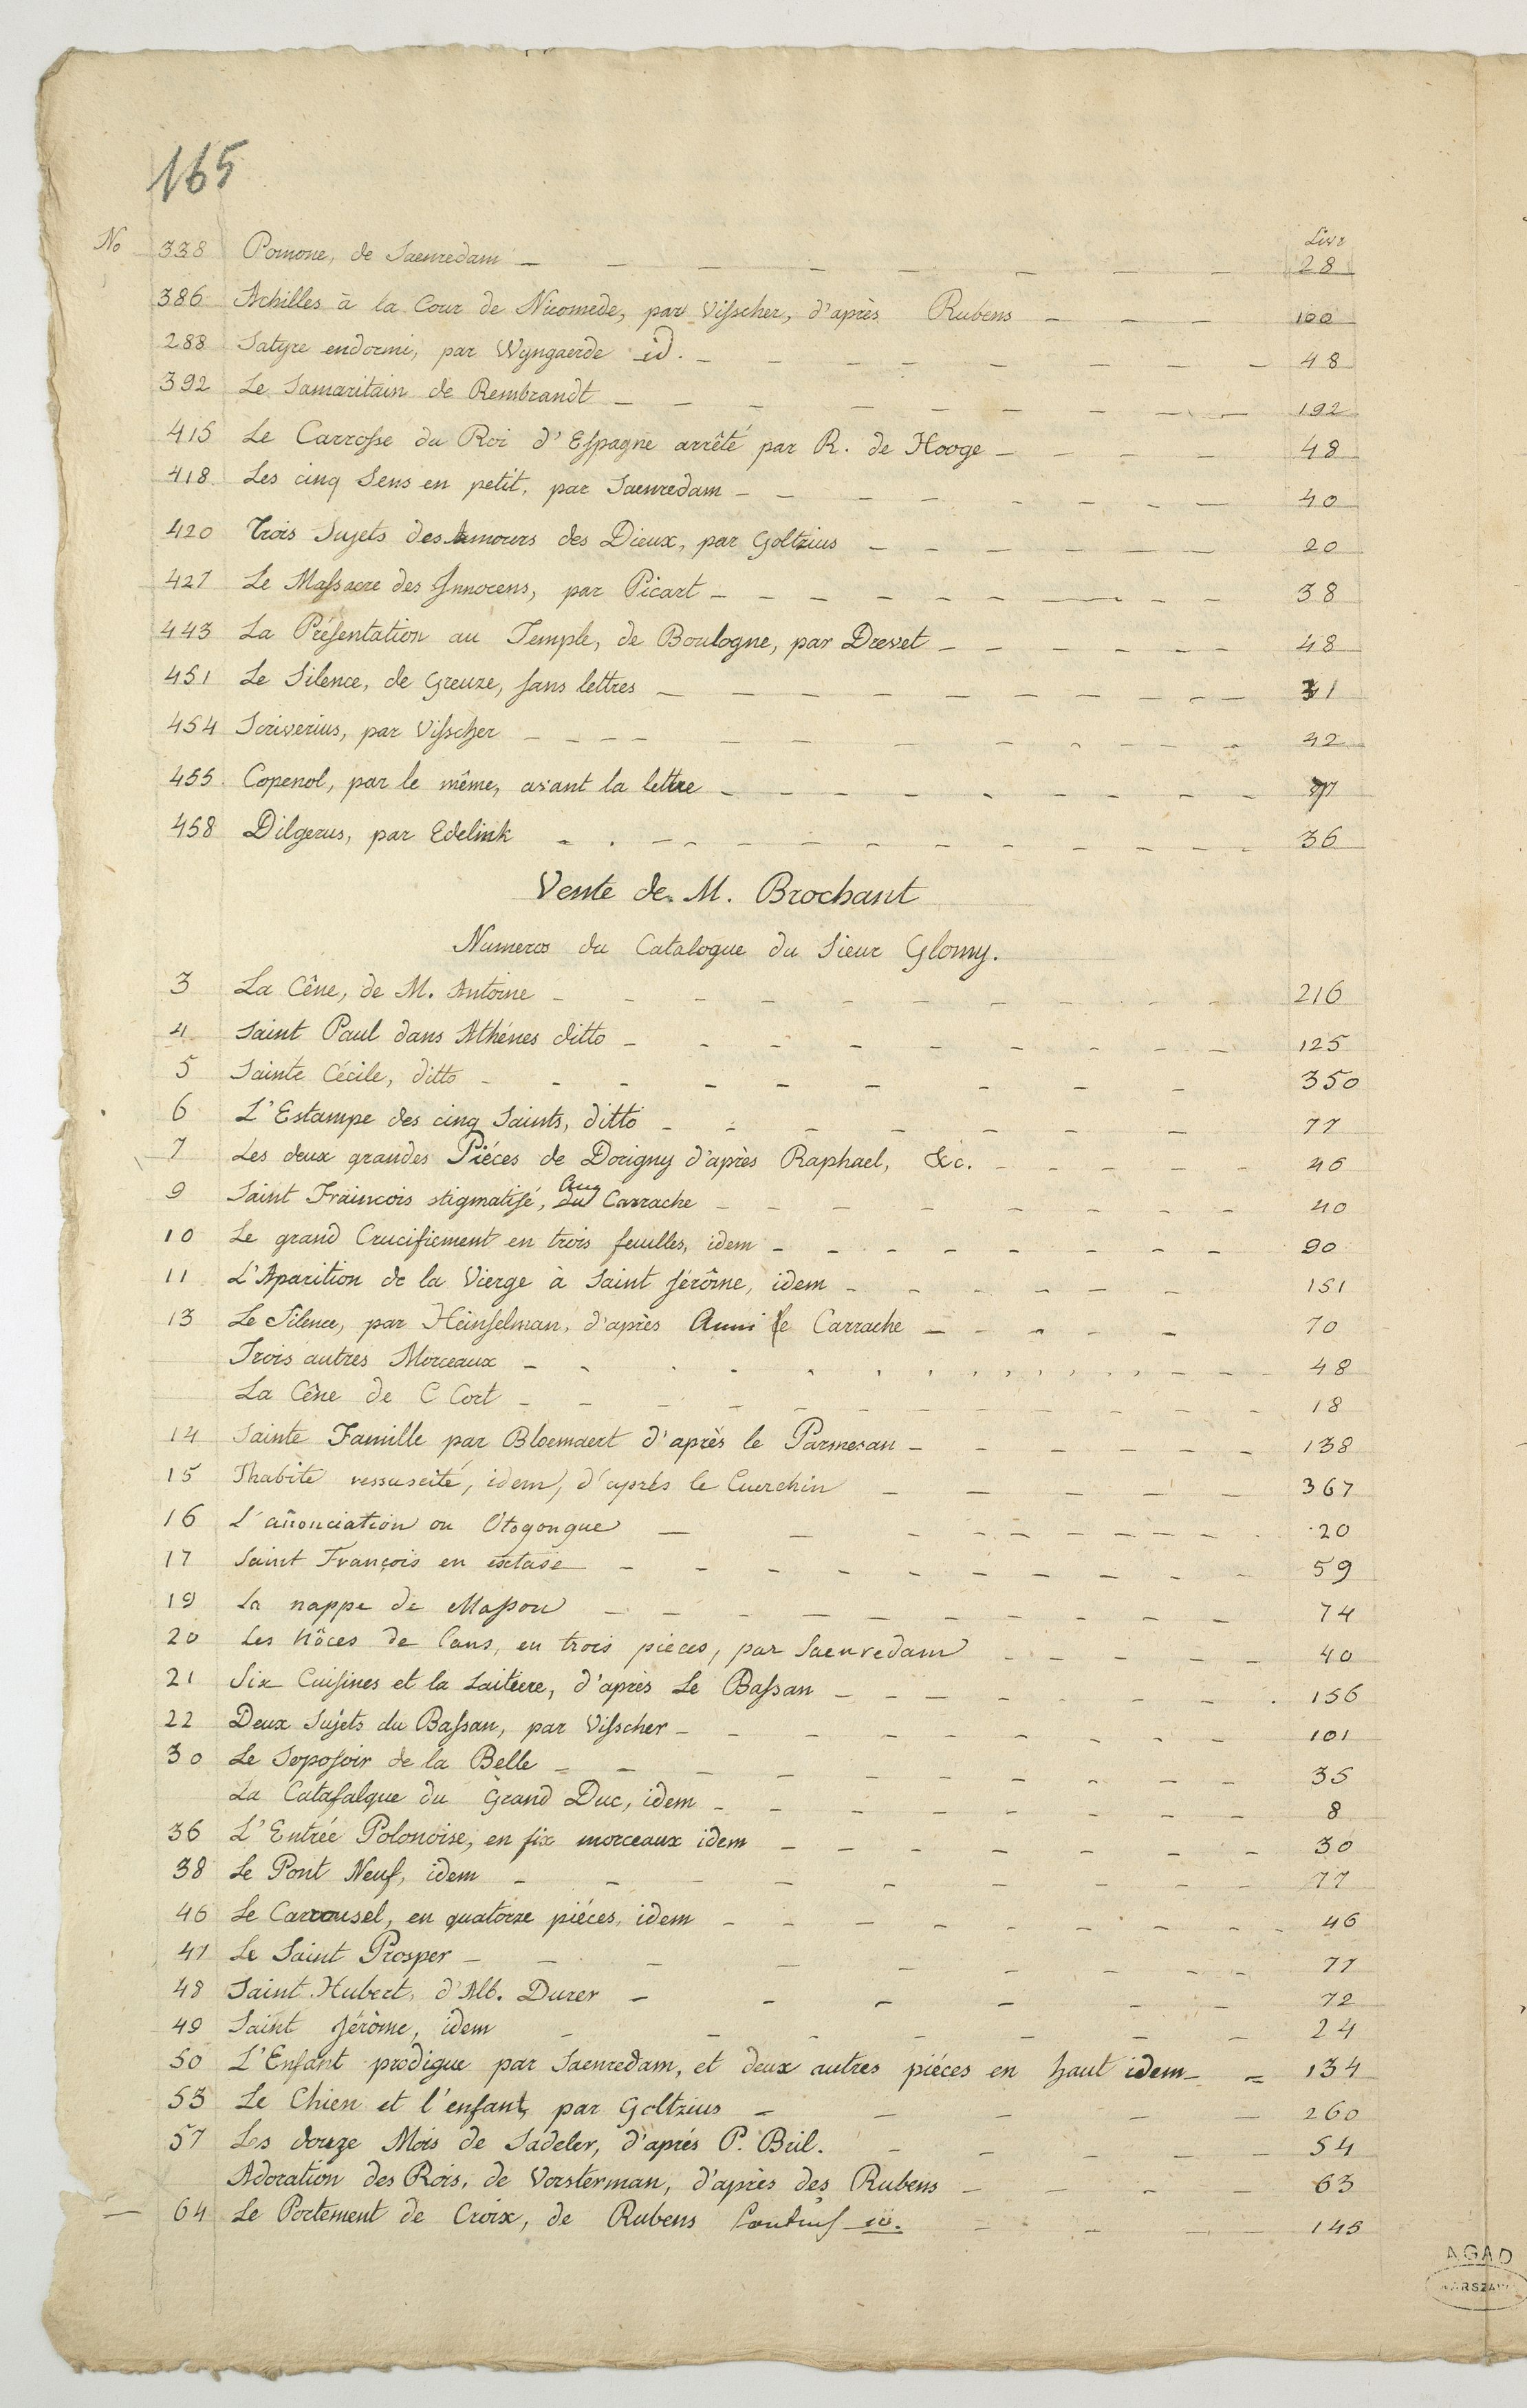 165
No Livr
338 Pomone, de Saenredam 28
386 Achilles à la Cour de Nicomede, par Visscher, d'après Rubens 100
288 Satyre endormi, par Wyngaerde id. 48
392 Le Samaritain de Rembrandt 192
415 Le Carrosse du Roi d'Espagne arrêté par R. de Hooge 48
418 Les cinq Sens en petit, par Saenredam 40
420 Trois Sujets des Amours des Dieux, par Goltzius 20
427 Le Massacre des Innocens, par Picart 38
443 La Présentation au Temple, de Boulogne, par Drevet 48
451 Le Silence, de Greuze, sans lettres 31
454 Scriverius, par Visscher 42
455 Copenol, par le même, avant la lettre
458 Dilgerus, par Edelink 36
Vente de M. Brochant
Numeros du Catalogue du Sieur Glomy.
3 La Cêne, de M. Antoine 216
4 Saint Paul dans Athénes ditto 125
5 Sainte Cécile, ditto 350
6 L'Estampe des cinq Saints, ditto 77
7 Les deux grandes Piéces de Dorigny d'après Raphael, &c. 46
9 Saint Fraincois stigmatisé, Aug Carrache 40
10 Le grand Crucifiement en trois feuilles, idem 90
11 L'Aparition de la Vierge à Saint Jérôme, idem 151
13 Le Silence, par Heinselman, d'après Anni le Carrache 70
Trois autres Morceaux 48
La Cêne de C Cort 18
14 Sainte Famille par Bloemaert d'après le Parmesan 138
15 Thabite ressuscité, idem, d'aprés le Guerchin 367
16 L'añonciation ou Otogongue 20
17 Saint François en extase 59
19 La nappe de Masson 74
20 Les Nôces de Cans, en trois pieces, par Saenredam 40
21 Six Cuisines et la Laitiere, d'après Le Bassan 156
22 Deux Sujets du Bassan, par Visscher 101
30 Le Soposoir de la Belle 35
La Catafalque du Grand Duc, idem 8
36 L'Entrée Polonoise, en six morceaux idem 30
38 Le Pont Neuf, idem 77
46 Le Carrousel, en quatorze piéces, idem 46
47 Le Saint Prosper 77
48 Saint Hubert, d'Alb. Durer 72
49 Saint Jérôme, idem 24
50 L'Enfant prodigue par Saenredam, et deux autres piéces en haut idem 134
53 Le Chien et l'enfant, par Goltzius 260
57 Les douze Mois de Sadeler, d'aprés P. Bril. 54
Adoration des Rois, de Vorsterman, d'après des Rubens 63
64 Le Portement de Croix, de Rubens Pontius id. 145
AGAD
WARSZAWA